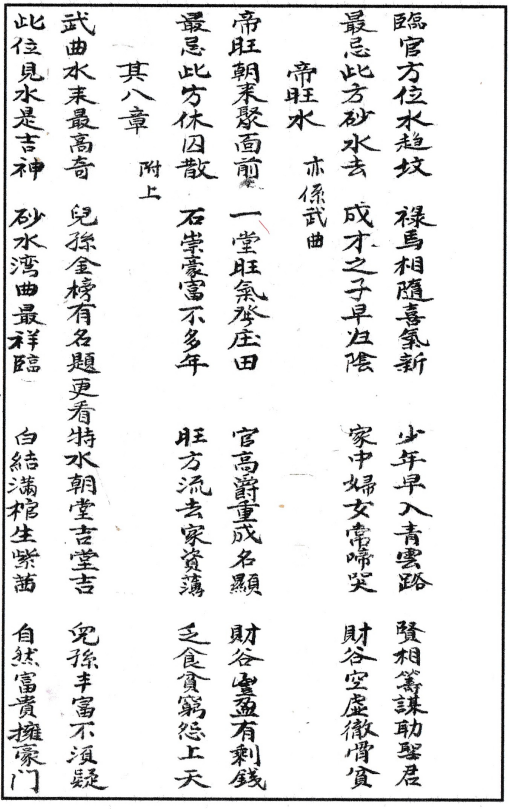 臨官方位水趋坟　祿馬相隨喜氣新　少年早入青雲路　賢相籌謀助聖君
最忌此方砂水去　成才之子早归陰　家中婦女常啼哭　財谷空虛徹骨貧
帝旺水　亦係武曲
帝旺朝来聚面前　一堂旺氣發庄田　官高爵重成名顯　財谷豊盈有剩錢
最忌此方休囚散　石崇豪富不多年　旺方流去家資薄　乏食貧窮怨上天
其八章　附上
武曲水来最高奇　兒孫金榜有名題更看特水朝堂吉堂吉　兒孫丰富不須疑
此位見水是吉神　砂水湾曲最祥臨　白結滿棺生紫茜　自然富貴擁豪门